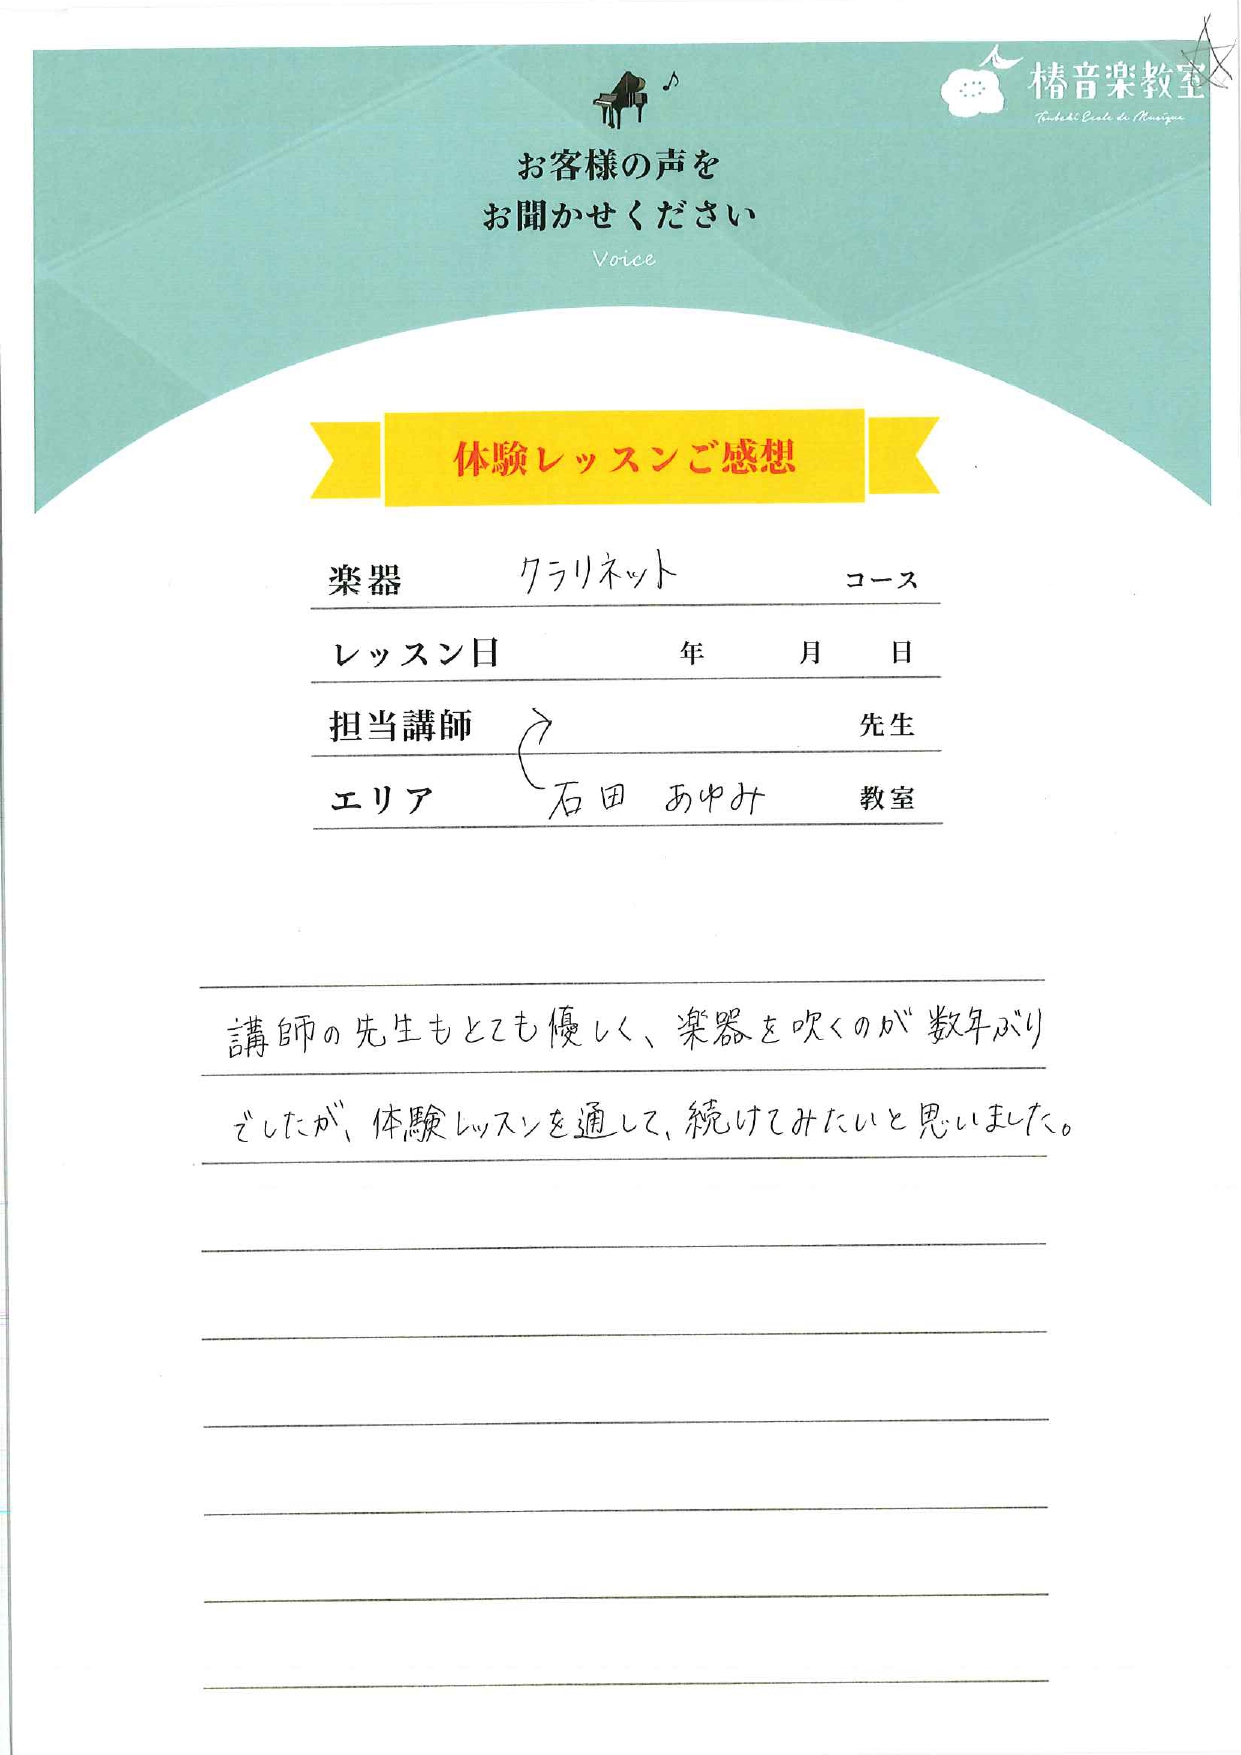 椿音楽教室
Tsubaki Ecole de Musique
お客様の声を
お聞かせください
Voice
体験レッスンご感想
楽器 クラリネット コース
レッスン日 年 月 日
担当講師 先生
エリア 石田 あゆみ 教室
講師の先生もとても優しく、楽器を吹くのが数年ぶり
でしたが、体験レッスンを通して、続けてみたいと思いました。